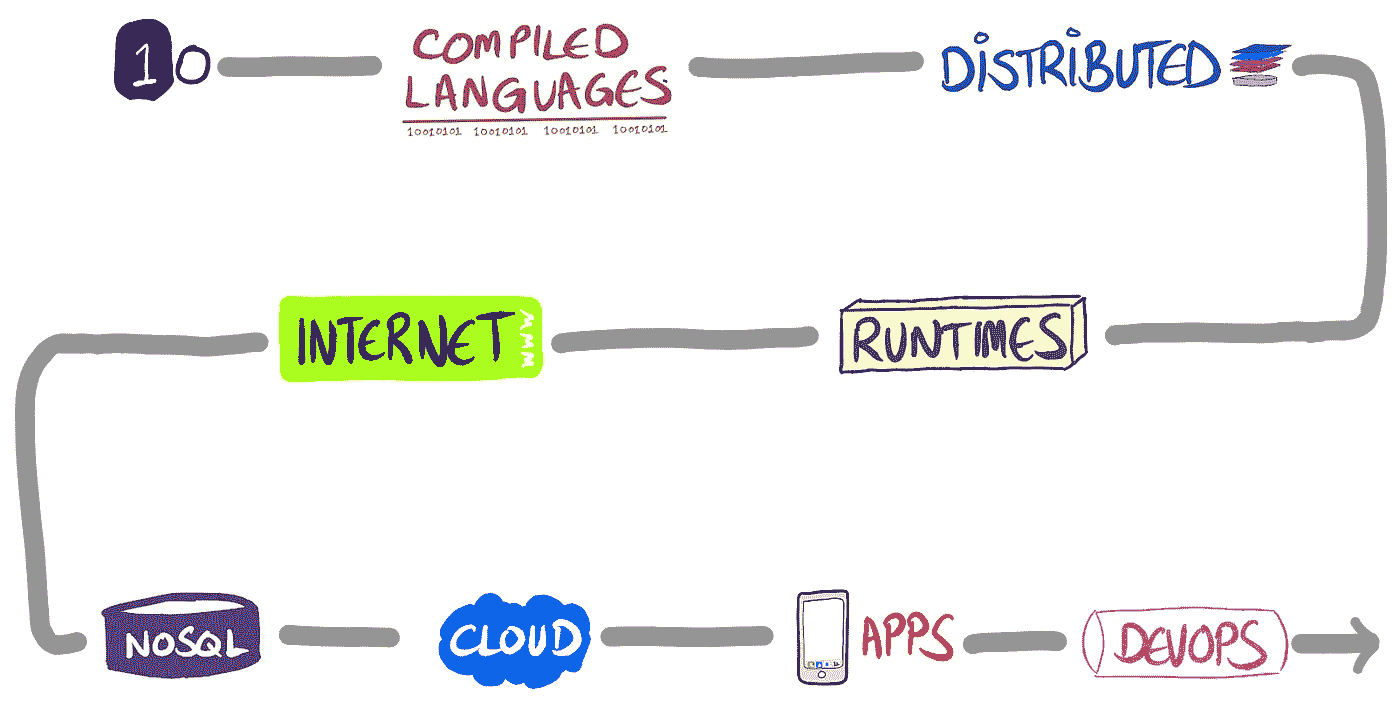 10
COMPILED
LANGUAGES
10010101 10010101 10010101 10010101
DISTRIBUTED
RUNTIMES
INTERNET
WWW
NOSQL
CLOUD
APPS
DEVOPS